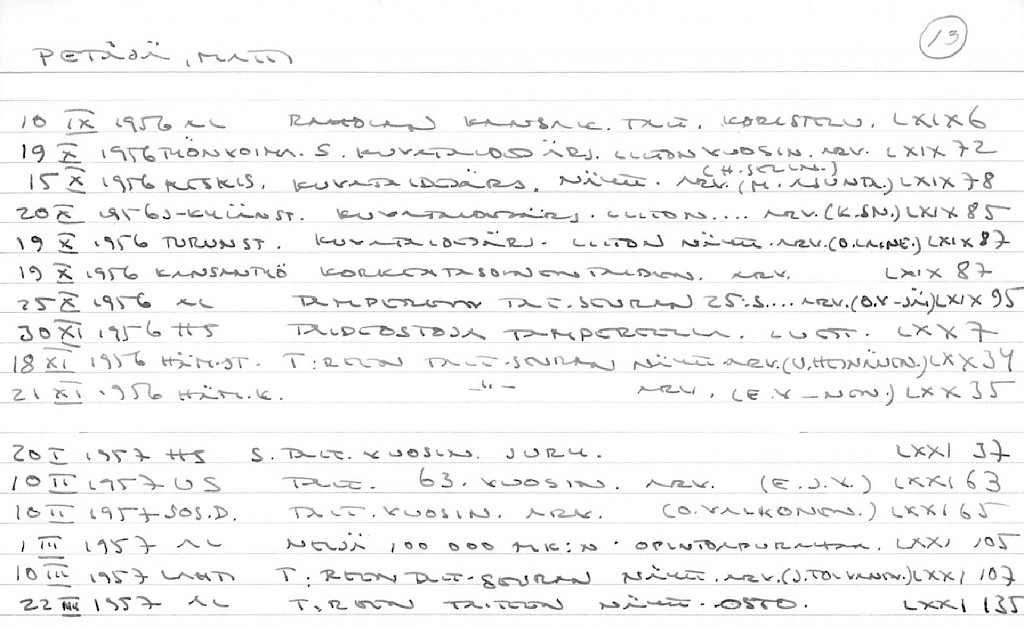 13
PETÄJÄ, MATTI
10 IX 1956 AL RAHOLAN KANSAK. TAIT. KORISTELU. LXIX 6
19 X 1956 TYÖNVOIMA. S. KUVATAIDEJÄRJ. LIITON VUOSIN. ARV. LXIX 72
(H. SELIN.)
15 X 1956 KESKIS. KUVATAIDEJÄRJ. NÄYTT. ARV. (M. ASUNTA.) LXIX 78
20 X 1956 J-KYLÄNST. KUVATAIDEJÄRJ. LIITON .... ARV. (K. SN.) LXIX 85
19 X 1956 TURUNST. KUVATAIDEJÄRJ. LIITON NÄYTT. ARV. (O. LAINE.) LXIX 87
19 X 1956 KANSANTYÖ KORKEATASOINEN TAIDEN. ARV. LXIX 87
25 X 1956 AL TAMPEREEN TAIT. SEURAN 25-.S.... ARV. (O.V-JÄ) LXIX 95
30 XI 1956 HS TAIDEOSTOJA TAMPEREELLA. LUETT. LXX 7
18 XI 1956 HÄM.ST. T:REEN TAIT-SEURAN NÄYTT. ARV. (V. HEINÄNEN.) LXX 34
21 XI 1956 HÄM.K. -"- ARV. (E.V-NEN.) LXX 35
20 I 1957 HS S. TAIT. VUOSIN. JURY. LXXI 37
10 II 1957 US TAIT. 63. VUOSIN. ARV. (E.J.V.) LXXI 63
10 II 1957 SOS.D. TAIT. VUOSIN. ARV. (O. VALKONEN.) LXXI 65
1 III 1957 AL NELJÄ 100 000 MK:N OPINTOAPURAHAA. LXXI 105
10 III 1957 LAHTI T:REEN TAIT-SEURAN NÄYTT. ARV. (J. TOLVANEN.) LXXI 107
22 III 1957 AL T:REEN TAITEEN NÄYTT. OSTO. LXXI 135